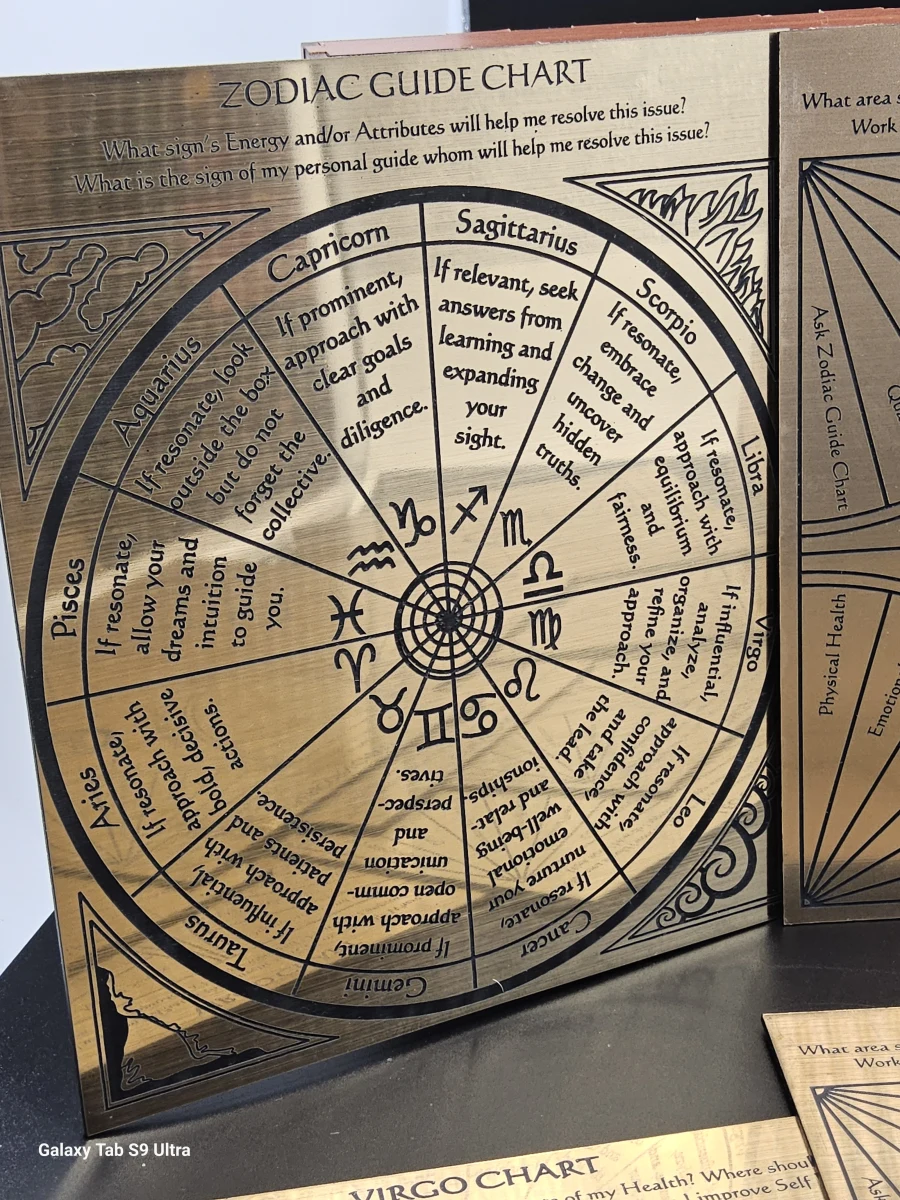 ZODIAC GUIDE CHART
What sign's Energy and/or Attributes will help me resolve this issue?
What is the sign of my personal guide whom will help me resolve this issue?
Capricorn
If prominent,
approach with
clear goals
and
diligence.
Sagittarius
If relevant, seek
answers from
learning and
expanding
your
sight.
Scorpio
If resonate,
embrace
change and
uncover
hidden
truths.
Libra
If resonate,
approach with
equilibrium
and
fairness.
Virgo
If influential,
analyze,
organize, and
refine your
approach.
Leo
If resonate,
approach with
confidence,
and take
the lead.
Cancer
If resonate,
nurture your
emotional
well-being
and relat-
ionships.
Gemini
If prominent,
approach with
open comm-
unication
and
perspec-
tives.
Taurus
If influential,
approach with
patients and
persistence.
Aries
If resonate,
approach with
bold, decisive
actions.
Pisces
If resonate,
allow your
dreams and
intuition
to guide
you.
Aquarius
If resonate, look
outside the box
but do not
forget the
collective.
What area
Work
Ask Zodiac Guide Chart
Physical Health
What area
Work
VIRGO CHART
of my Health? Where
improve Self
Galaxy Tab S9 Ultra